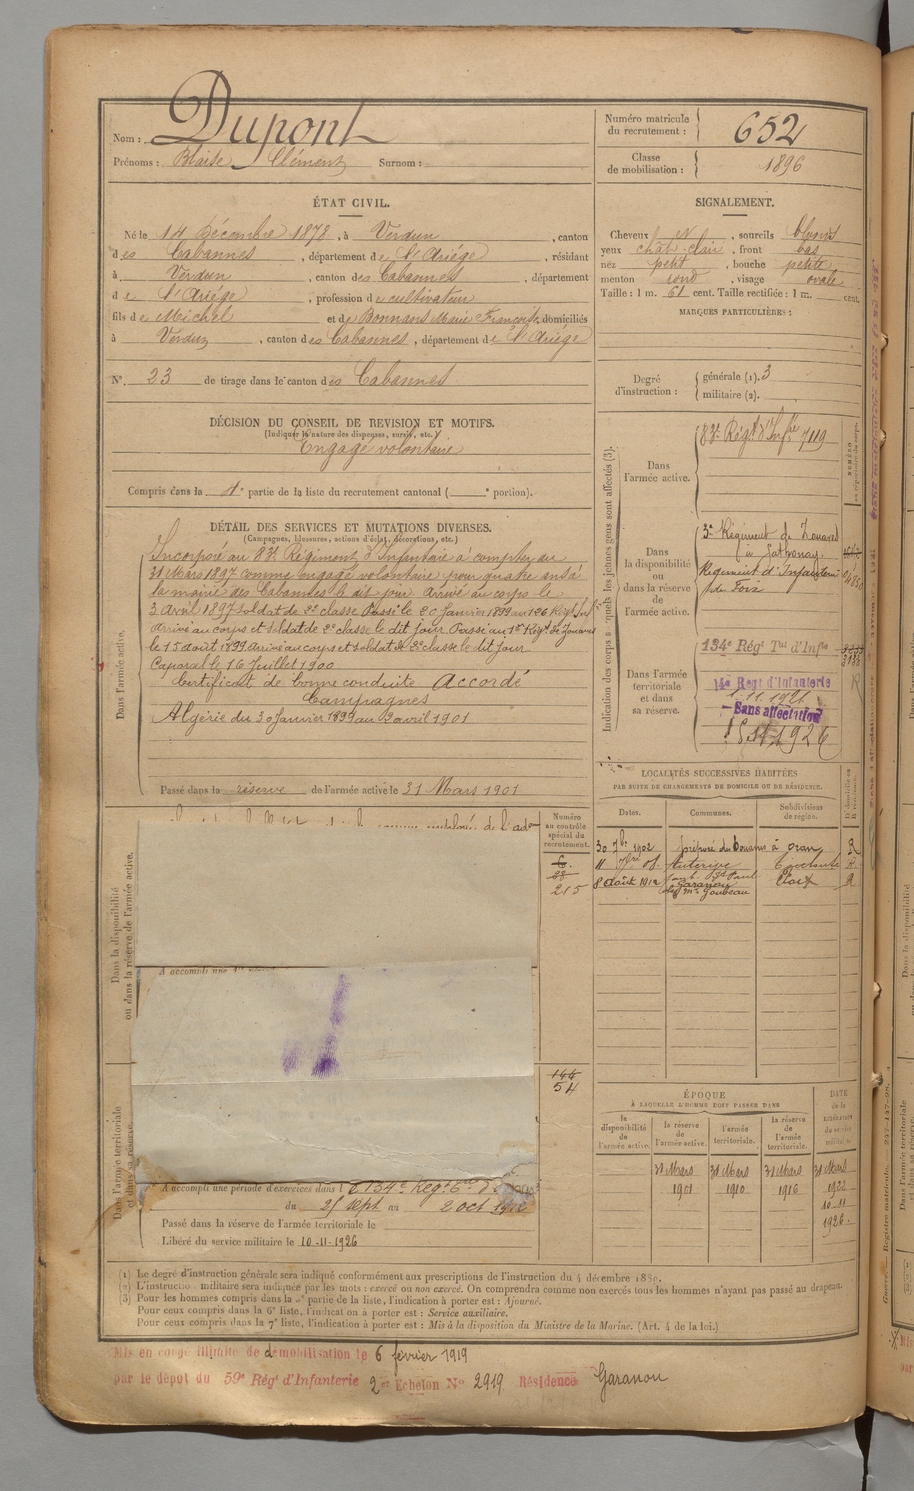 Nom : Dupont
Prénoms : Blaise Clément Surnom :
Numéro matricule du recrutement : 652
Classe de mobilisation : 1896
ÉTAT CIVIL.
Né le 14 Décembre 1878, à Verdun, canton
des Cabannes, département de l'Ariège, résidant
à Verdun, canton des Cabannes, département
de l'Ariège, profession de cultivateur
fils de Michel et de Bonnans Marie Françoise, domiciliés
à Verdun, canton des Cabannes, département de l'Ariège
N° 23 de tirage dans le canton des Cabannes
SIGNALEMENT.
Cheveux, sourcils blonds
yeux chât-clair, front bas
nez petit, bouche petite
menton rond, visage ovale
Taille : 1 m. 61 cent. Taille rectifiée : 1 m. cent.
MARQUES PARTICULIÈRES :
Degré d'instruction : générale (1). 3
militaire (2).
DÉCISION DU CONSEIL DE REVISION ET MOTIFS.
(Indiquer la nature des dispenses, sursis, etc.)
Engagé volontaire
Compris dans la 4e partie de la liste du recrutement cantonal ( e portion).
DÉTAIL DES SERVICES ET MUTATIONS DIVERSES.
(Campagnes, blessures, actions d'éclat, décorations, etc.)
Dans l'armée active.
Incorporé au 83e Régiment d'Infanterie à compter du
31 Mars 1897 comme engagé volontaire pour quatre ans à
la mairie des Cabannes le dit jour. Arrivé au corps le
3 Avril 1897 soldat de 2e classe. Passé le 20 Janvier 1899 au 126 Régt Infie
arrivé au corps et soldat de 2e classe le dit jour. Passé au 1er Régt de Zouaves
le 15 août 1899 arrivé au corps et soldat de 2e classe le dit jour
Caporal le 16 Juillet 1900
Certificat de bonne conduite Accordé
Campagnes
Algérie du 30 Janvier 1899 au 9 avril 1901
Passé dans la réserve de l'armée active le 31 Mars 1901
Indication des corps auxquels les jeunes gens sont affectés (3).
NUMÉRO
au répertoire du corps.
Dans l'armée active. 83e Régt d'Infie 7119
Dans la disponibilité ou dans la réserve de l'armée active.
3e Régiment de Zouaves
à Sathonay
Régiment d'Infanterie
de Foix
Dans l'armée territoriale et dans sa réserve.
134e Régt Tal d'Infie
14e Regt d'Infanterie
1.11.1921
Sans affectation
1926
LOCALITÉS SUCCESSIVES HABITÉES
PAR SUITE DE CHANGEMENTS DE DOMICILE OU DE RÉSIDENCE.
Dates. Communes. Subdivisions de région.
30 7bre 1902 préposé des Douanes à Oran R
11 Auterive Toulouse R
8 Août 1912 Garanou Foix R
Dans la disponibilité ou dans la réserve de l'armée active.
Numéro au contrôle spécial du recrutement.
215
A accompli une 1re
144
54
Dans l'armée territoriale et dans sa réserve.
A accompli une période d'exercices dans le 134e Régt
du 25 sept au 2 oct
Passé dans la réserve de l'armée territoriale le
Libéré du service militaire le 10-11-1926
ÉPOQUE
À LAQUELLE L'HOMME DOIT PASSER DANS
la disponibilité de l'armée active.
la réserve de l'armée active.
l'armée territoriale.
la réserve de l'armée territoriale.
DATE de la LIBÉRATION du service militaire.
31 Mars 31 Mars 31 Mars 31 Mars
1901 1910 1916 1922
10-11
1926.
(1) Le degré d'instruction générale sera indiqué conformément aux prescriptions de l'instruction du 4 décembre 1889.
(2) L'instruction militaire sera indiquée par les mots : exercé ou non exercé. On comprendra comme non exercés tous les hommes n'ayant pas passé au drapeau.
(3) Pour les hommes compris dans la 5e partie de la liste, l'indication à porter est : Ajourné.
Pour ceux compris dans la 6e liste, l'indication à porter est : Service auxiliaire.
Pour ceux compris dans la 7e liste, l'indication à porter est : Mis à la disposition du Ministre de la Marine. (Art. 4 de la loi.)
Mis en congé illimité de démobilisation le 6 février 1919
par le dépôt du 59e Régt d'Infanterie 2e Echelon N° 2919 Résidence Garanou